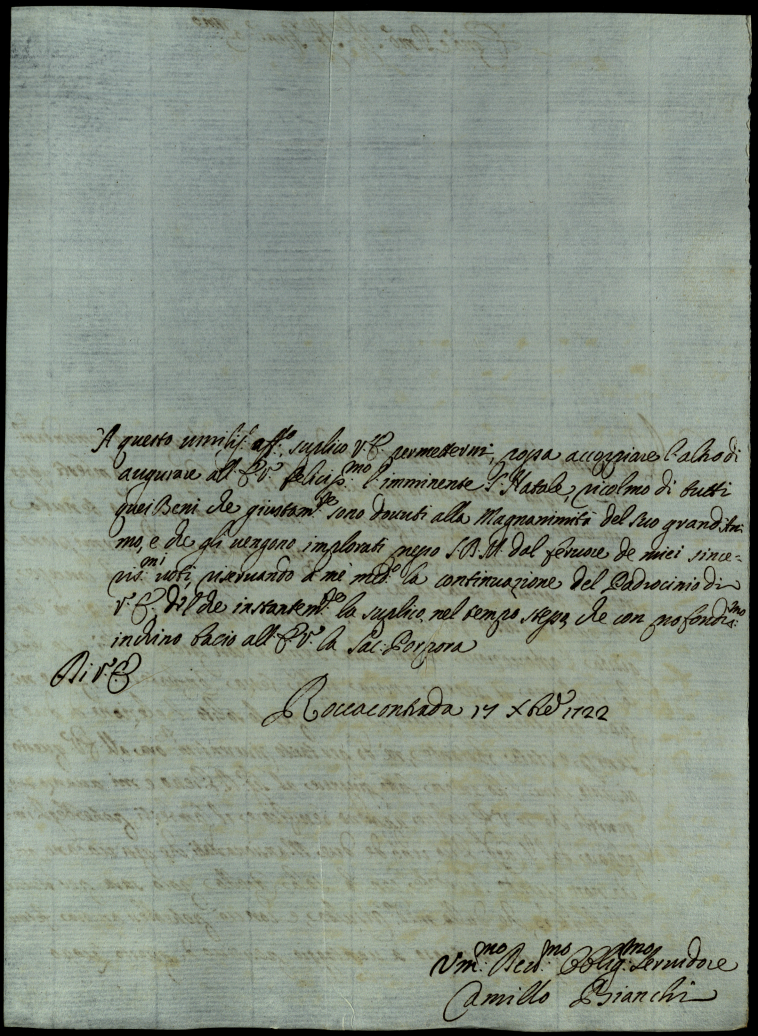 A questo umiliss.º aff.to, suplico V.E. permettermi, possa accoppiare l'altro di
augurare all'E.V. feliciss.mo l'imminente S. Natale, ricolmo di tutti
quei Beni che giustam.te sono dovuti alla Magnanimità del suo grand'Ani-
mo, e che gli vengono implorati presso S.D.M. dal fervore de miei since-
ris.mi voti, riservando a me med.o la continuazione del Padrocinio di
V.E., del che instantem.te la suplico nel tempo stesso, che con profondis.mo
inchino bacio all'E.V. la Sac: Porpora
Di V.E.
Roccacontrada 17 Xbre 1722
Um.mo Dev.mo Oblig.mo Servidore
Camillo Bianchi